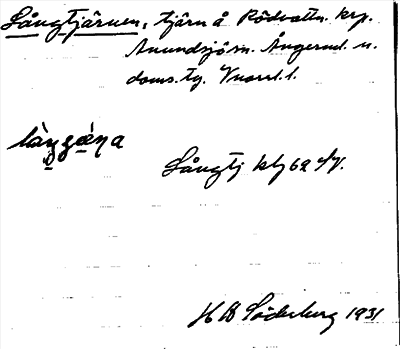 Långtjärnen, tjärn å Rödvattn. krp.
Anundsjö sn. Ångerml. n.
doms. tg. Vnorrl. l.
Långtj kbl 62
H B Söderberg 1931